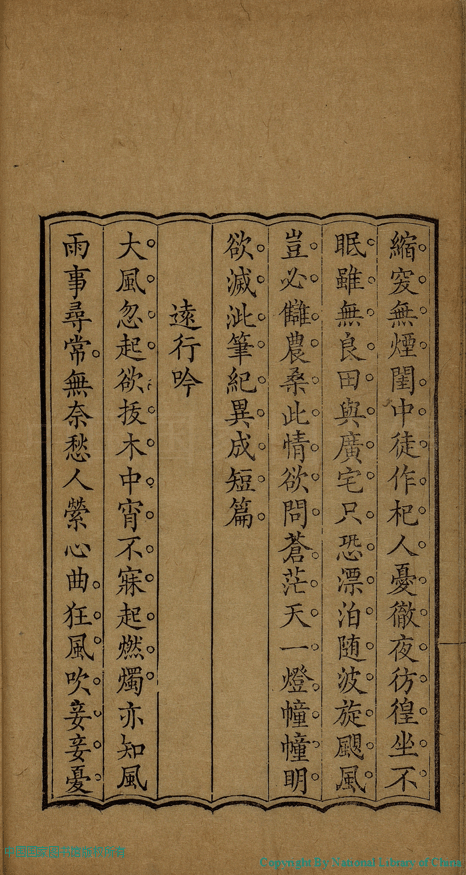 縮突無煙閨中徒作杞人憂徹夜彷徨坐不
眠雖無良田與廣宅只恐漂泊随波旋颶風
豈必讎農桑此情欲問蒼茫天一燈幢幢明
欲滅泚筆紀異成短篇
遠行吟
大風忽起欲拔木中宵不寐起燃燭亦知風
雨事尋常無奈愁人縈心曲狂風吹妾妾憂
Copyright By National Library of China